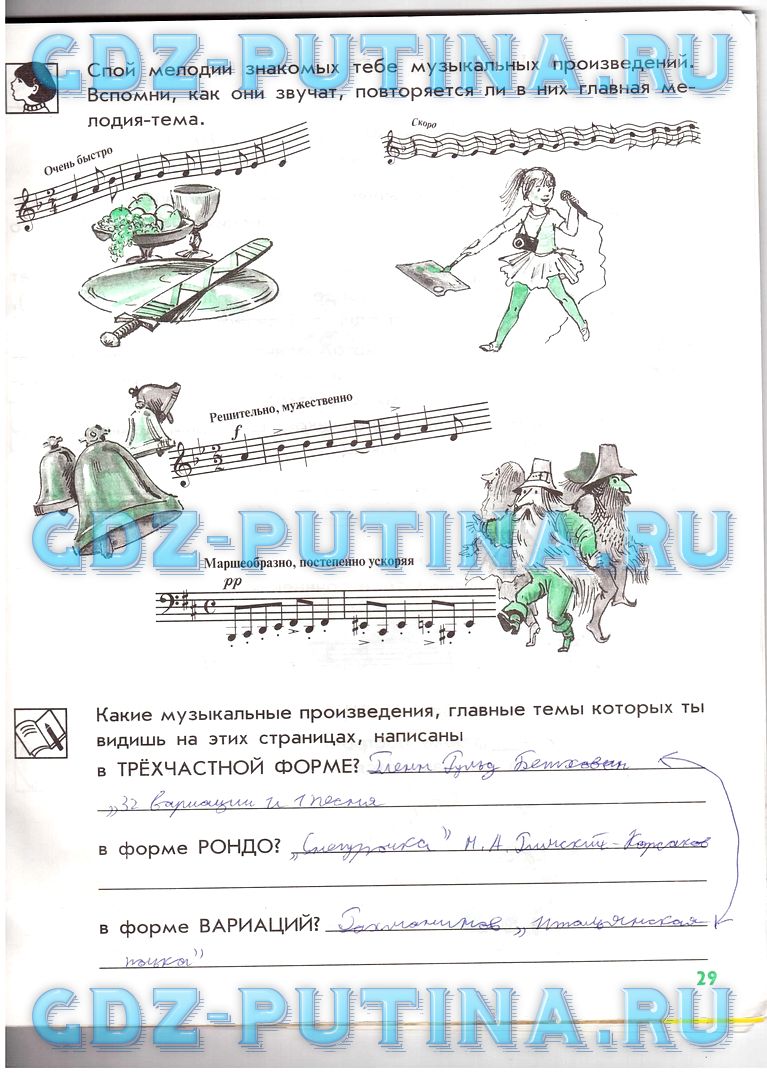 GDZ-PUTINA.RU
Спой мелодии знакомых тебе музыкальных произведений.
Вспомни, как они звучат, повторяется ли в них главная ме-
лодия-тема.
Очень быстро
Скоро
Решительно, мужественно
f
GDZ-PUTINA.RU
Маршеобразно, постепенно ускоряя
pp
Какие музыкальные произведения, главные темы которых ты
видишь на этих страницах, написаны
в ТРЁХЧАСТНОЙ ФОРМЕ? Гленн Гульд Бетховен
„32 вариации и 1 песня
в форме РОНДО? „Снегурочка" Н.А. Римский-Корсаков
в форме ВАРИАЦИЙ? Рахманинов „Итальянская
полька"
29
GDZ-PUTINA.RU